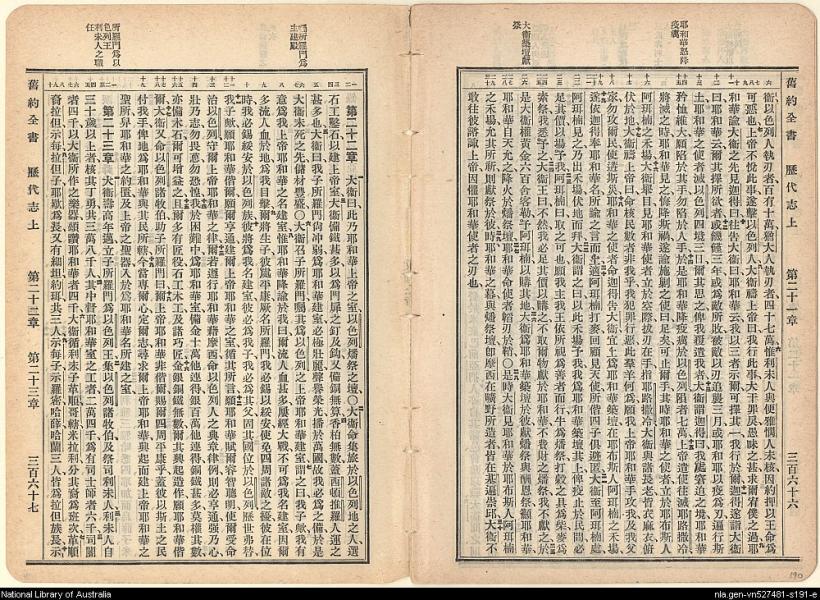 耶和華怒降
疫癘
大衛築壇獻
祭
舊約全書 歷代志上 第二十一章 三百六十六
衛以色列人執刃者百有十萬猶大人執刃者四十七萬惟利未人與便雅憫人未核因約押以王命爲
可惡也上帝不悅此事遂擊以色列人大衛禱上帝曰我行此事大干罪戾愚昧之甚求爾宥僕之過耶
和華諭大衛之先見迦得曰往告大衛曰耶和華云我以三者示爾可擇其一我行於爾迦得遂詣大衛
曰耶和華云爾其擇所欲者或饑饉三年或爲敵所敗被敵以刃追襲三月或耶和華以疫爲刃遍行斯
土耶和華之使者滅以色列四境三日爾其思之俾我覆遣我者大衛謂迦得曰我處窘迫之境耶和華
矜恤維大願陷於其手勿陷於人手於是耶和華降疫癘於以色列隕者七萬上帝遣使往滅耶路撒冷
將滅之時耶和華見之悔降斯禍遂諭施剿之使曰足矣可止爾手其時耶和華之使者立於耶布斯人
阿珥楠之禾場大衛舉目見耶和華使者立於空際拔刃在手指耶路撒冷大衛與諸長老皆衣麻衣俯
伏於地大衛禱上帝曰命核民數者非我乎我犯罪行惡此羣羊何爲願我上帝耶和華手攻我及我父
家勿攻爾民使遘災害耶和華之使者命迦得告大衛宜上爲耶和華築壇在耶布斯人阿珥楠之禾場
大衛遂依迦得奉耶和華名所諭之言而上適阿珥楠打麥回顧見天使所偕四子俱避匿大衛至阿珥楠處
阿珥楠見之乃出禾場伏地而拜大衛謂之曰以此禾場予我我爲耶和華築壇其上俾疫止於民間必
足其價以場予我阿珥楠曰取之可也願我主我王依所視爲善者而行牛爲燔祭打穀之具爲柴麥爲
素祭我悉予之大衛王曰不然我必足其價以購之不取爾物獻於耶和華不費財之燔祭我不獻之於
是大衛權黃金六百舍客勒予阿珥楠以購其地大衛爲耶和華築壇於彼獻燔祭與酬恩祭籲耶和華
耶和華自天允之降火於燔祭壇耶和華命使者韜刃於鞘〇是時大衛見耶和華於耶布斯人阿珥楠
之禾場允其所祈則獻祭於彼時耶和華之幕與燔祭壇卽摩西在曠野所造者皆在基遍崇邱大衛不
敢往彼諮諏上帝因懼耶和華使者之刃也
命所羅門爲
主建殿
所羅門爲以
色列王
利未人之職
任
第二十二章 大衛曰此乃耶和華上帝之室以色列燔祭之壇〇大衛命集旅於以色列地之人選
石工鑿石以建上帝室大衛備鐵甚多以爲門扉之釘及鉤又備銅無算香柏無數蓋西頓推羅人運之
甚多也大衛曰我子所羅門尙沖弱爲耶和華建室必極壯麗聲譽榮光播於萬國故我必爲之備於是
大衛未死之先儲材孔盛〇大衛召子所羅門囑其爲以色列之上帝耶和華建室謂之曰我子歟我有
意爲我上帝耶和華之名建室惟耶和華降諭於我曰爾流人血甚多屢經大戰不可爲我名建室因爾
多流人血於地爲我目擊爾將生子彼爲平康厥名所羅門我必錫以綏安使免四周諸敵之擾彼在位
時我必錫綏安於以色列族彼將爲我名建室彼必爲我子我必爲其父固其國位於以色列歷世弗替
我子歟願耶和華偕爾願爾亨通建爾上帝耶和華之室循其所言願耶和華賦爾睿智聰明使爾受命
治以色列守爾上帝耶和華之律爾若遵行耶和華藉摩西命以色列人之典章律例則必亨通強乃心
壯乃志勿畏葸勿恐惶我於困難中爲耶和華室備金十萬他連得銀百萬他連得銅鐵甚多莫權其數
亦備木石爾可增益之且爾多有匠役石工木工及諸巧匠金銀銅鐵無數爾其興起造作願耶和華偕
爾大衛又命以色列諸牧伯助子所羅門曰爾上帝耶和華非偕爾賜爾四周平康乎蓋彼以斯土之民
付我手俾地爲耶和華與其民所服今當專爾心定爾志尋求爾上帝耶和華興起而建上帝耶和華之
聖所舁耶和華之約匱及上帝之聖器入於爲耶和華名所建之室
第二十三章 大衛壽高年邁立子所羅門爲以色列王集以色列諸牧伯及祭司利未人利未人自
三十歲以上者核其丁男共三萬八千人其中督耶和華室之工者二萬四千爲有司士師者六千司閽
者四千以大衛所作之樂器頌讚耶和華者四千大衛循利未子革順哥轄米拉利分其裔爲班〇革順
裔拉但示每拉但子耶歇爲長又有細坦約珥共三人示每子示羅密哈薛哈蘭三人皆爲拉但族長示
舊約全書 歷代志上 第二十二章 第二十三章 三百六十七
190
National Library of Australia
nla.gen-vn527481-s191-e